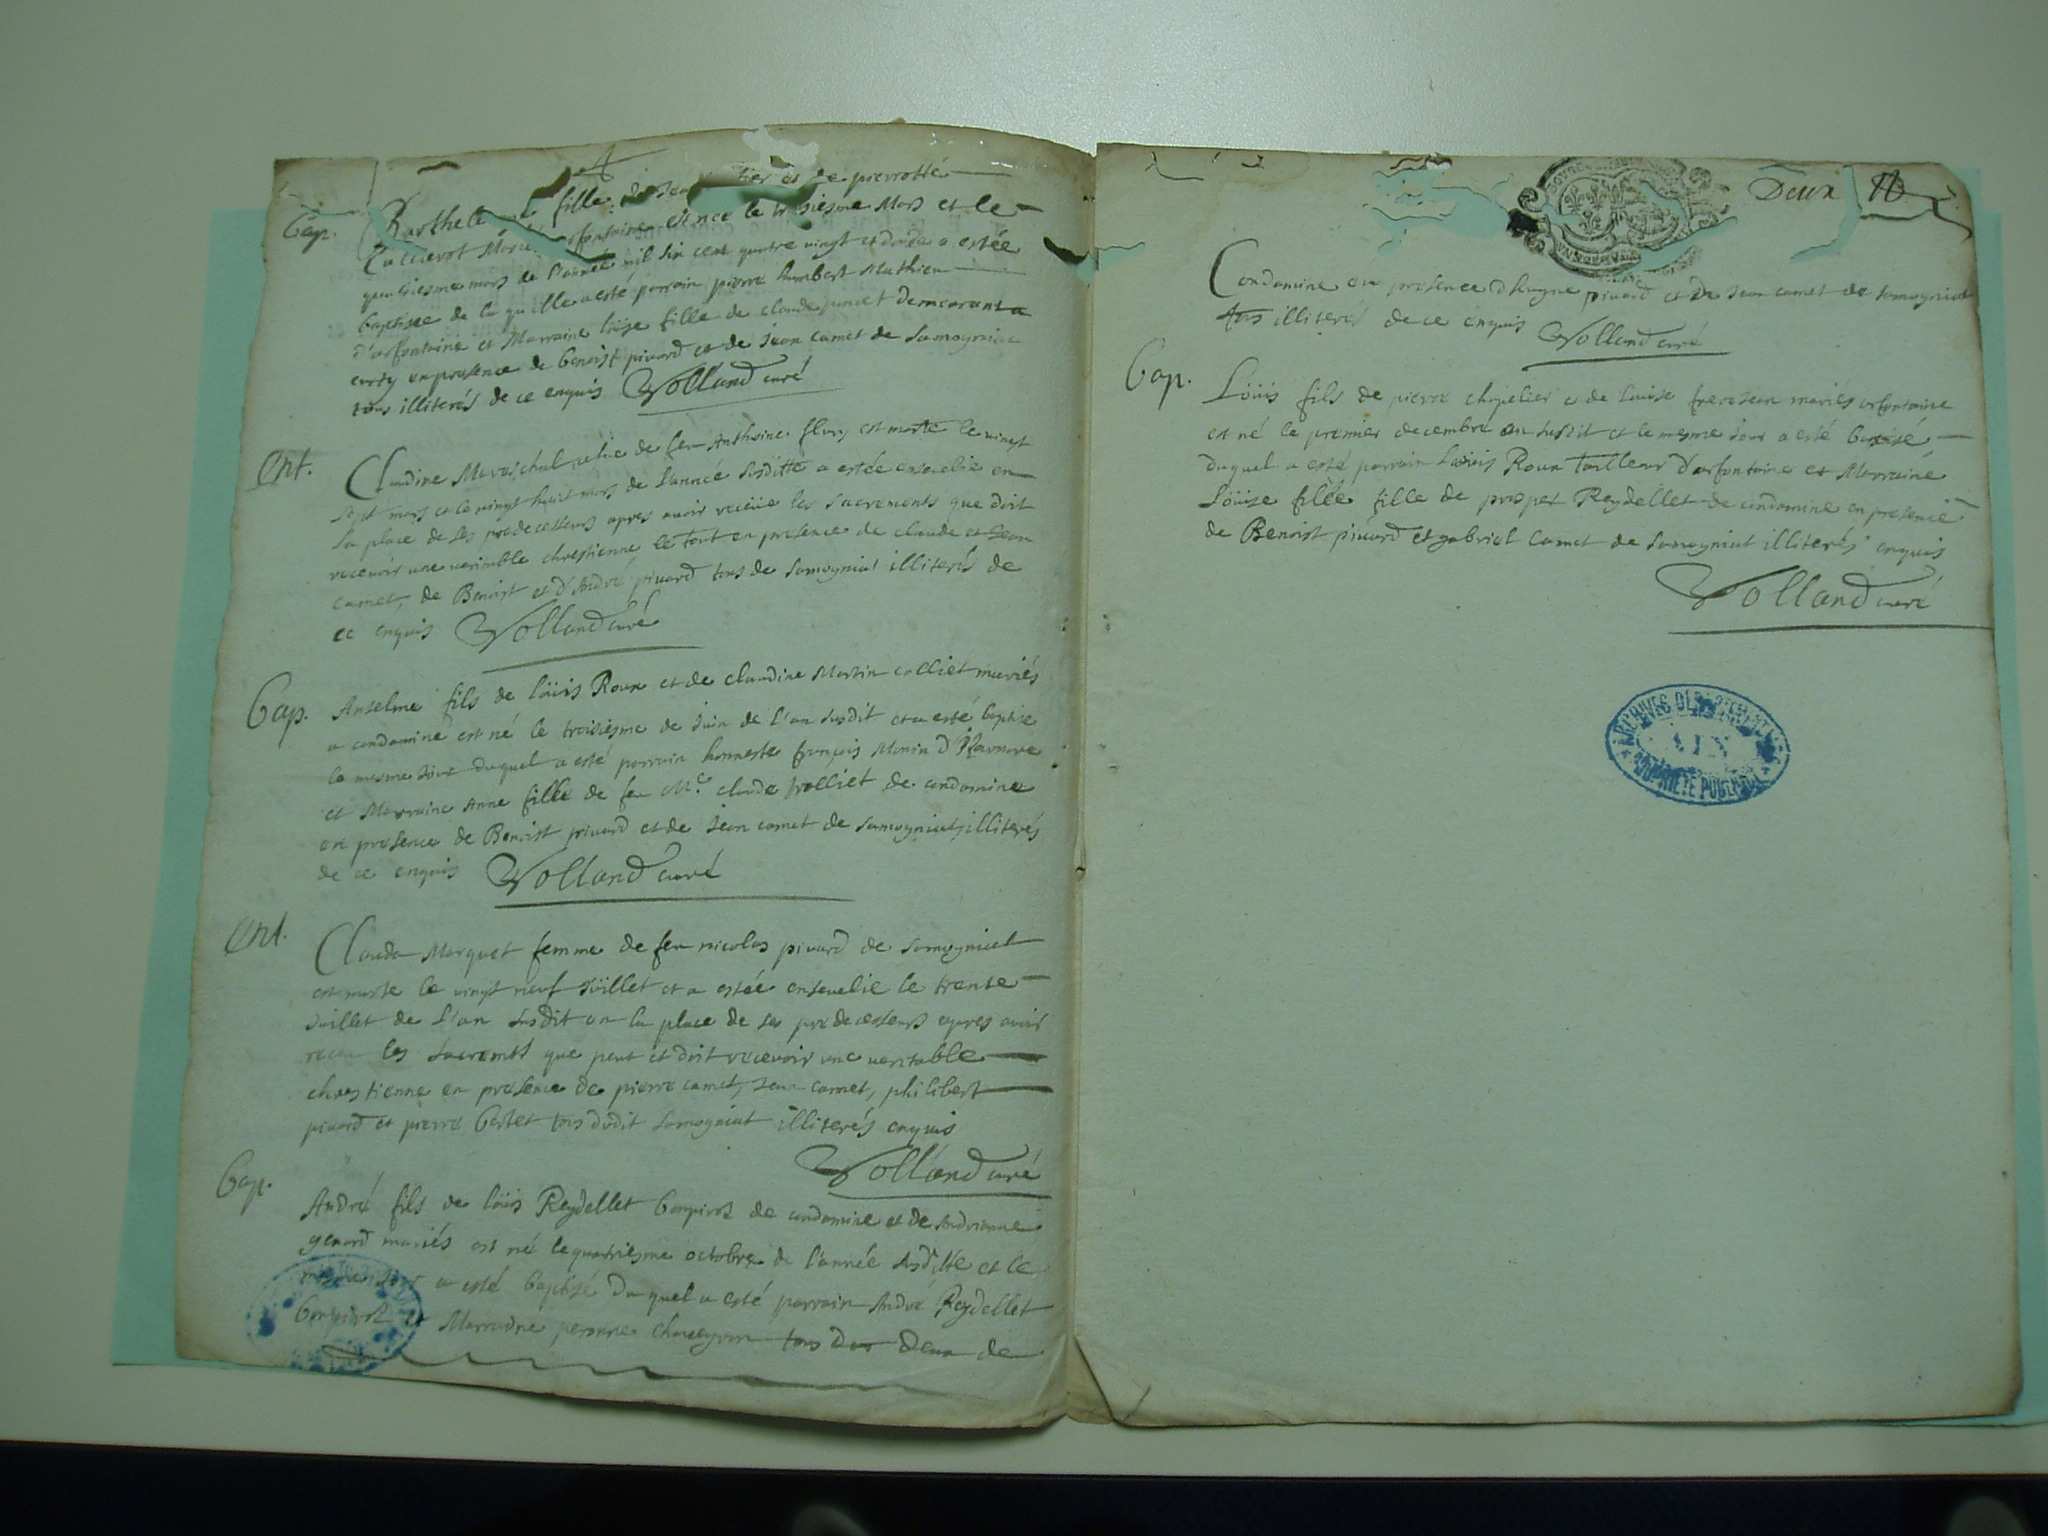 Bap.
Barthele fille de Jean et de pierrotte
est née le troisiesme Mars et le
quatriesme mars de l'année mil six cent quatre vingt et douze a estée
baptisée de la quelle a esté parrain pierre humbert Mathieu
d'arfontaine et Marraine loüise fille de claude poncet demeurant a
en presence de benoist pivard et de Jean camet de Samogniat
tous illiterés de ce enquis Volland curé
Ent.
Claudine Mareschal relie de feu Anthoine flury est morte le vingt
sept mars et le vingt huit mars de l'année susditte a estée ensevelie en
la place de ses predecesseurs apres avoir receüe les sacrements que doit
recevoir une veritable chrestienne le tout en presence de claude et Jean
camet, de Benoist et d'André pivard tous de samogniat illiterés de
ce enquis Volland curé
Bap.
Anselme fils de loüis Roux et de claudine Martin colliet mariés
a condamine est né le troisiesme de Juin de l'an susdit et a esté baptise
le mesme Jour duquel a esté parrain honneste françois Monin d'Izernore
et Marraine Anne fille de feu Mre. claude trolliet de condamine
en presence de Benoist pivard et de Jean camet de samogniat, illiterés
de ce enquis Volland curé
Ent.
Clauda Marquet femme de feu nicolas pivard de samogniat
est morte le vingt neuf Jüillet et a estée ensevelie le trente
Juillet de l'an susdit en la place de ses predecesseurs apres avoir
receu les sacremts que peut et doit recevoir une veritable
chrestienne en presence de pierre camet, Jean camet, philibert
pivard et pierre bertet tous dudit samogniat illiterés enquis
Volland curé
Bap.
André fils de loüis Reydellet bonpivot de condamine et de Andrianne
genard mariés est né le quatriesme octobre de l'année susditte et le
mesme Jour a esté baptisé du quel a esté parrain André Reydellet
bonpivot et Marraine peronne tous deux de
Deux
Condamine en presence d'hugue pivard et de Jean camet de samogniat
tous illiterés de ce enquis Volland curé
Bap.
Loüis fils de pierre chapelier et de loüise frerejean mariés arfontaine
est né le premier decembre an susdit et le mesme Jour a esté
duquel a esté parrain Loüis Roux tailleur d'arfontaine et Marraine
Loüise fille fille de prosper Reydellet de condamine en presence
de Benoist pivard et gabriel camet de samogniat illiterés enquis
Volland curé
ARCHIVES DEPARTEMENTALES
AIN
PROPRIETE PUBLIQUE